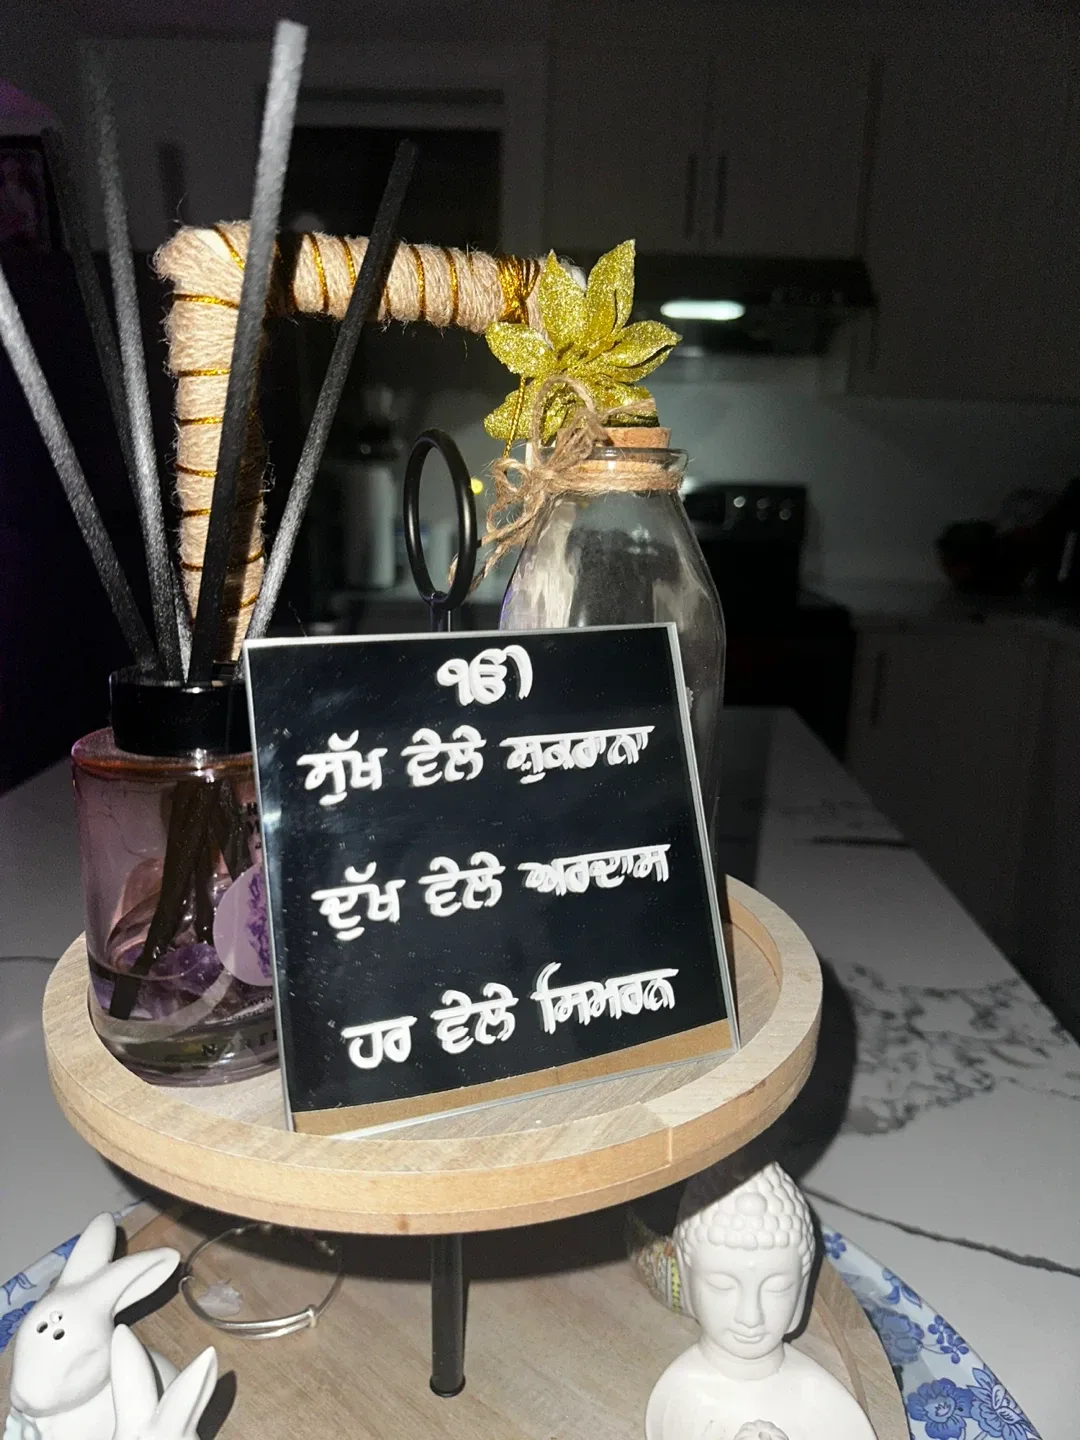 ੴ
ਸੁੱਖ ਵੇਲੇ ਸ਼ੁਕਰਾਨਾ
ਦੁੱਖ ਵੇਲੇ ਅਰਦਾਸ
ਹਰ ਵੇਲੇ ਸਿਮਰਨ